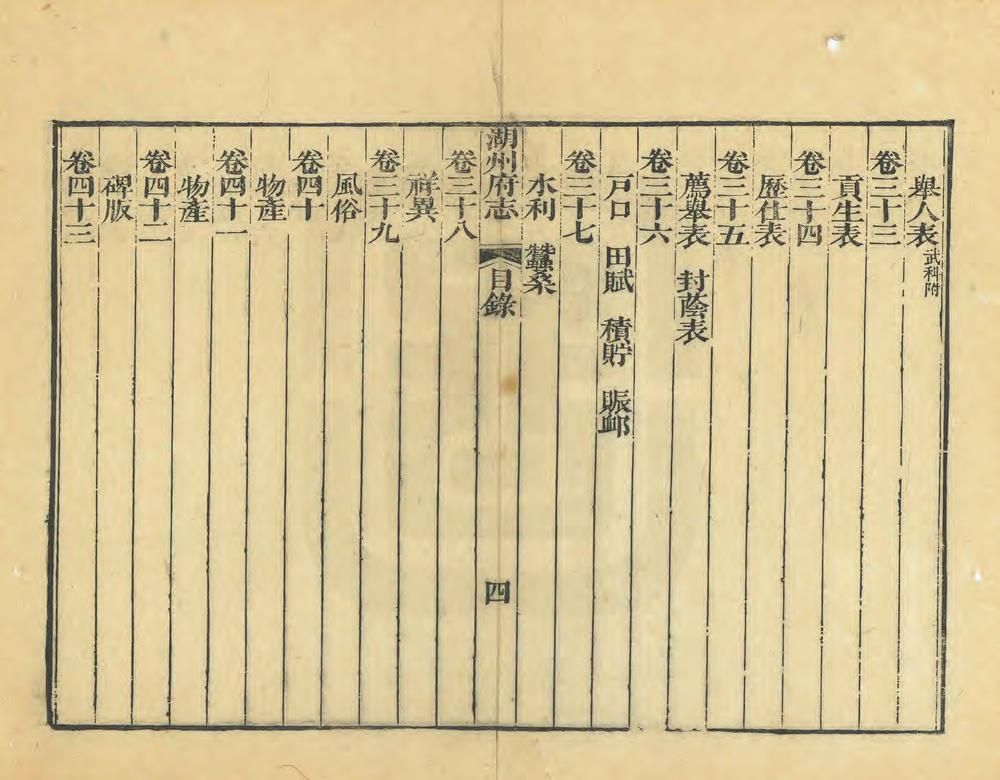 舉人表武科附
卷三十三
貢生表
卷三十四
歷仕表
卷三十五
薦舉表　封蔭表
卷三十六
戸口　田賦　積貯　賑卹
卷三十七
水利　蠶桑
湖州府志　目錄　四
卷三十八
祥異
卷三十九
風俗
卷四十
物產
卷四十一
物產
卷四十二
碑版
卷四十三